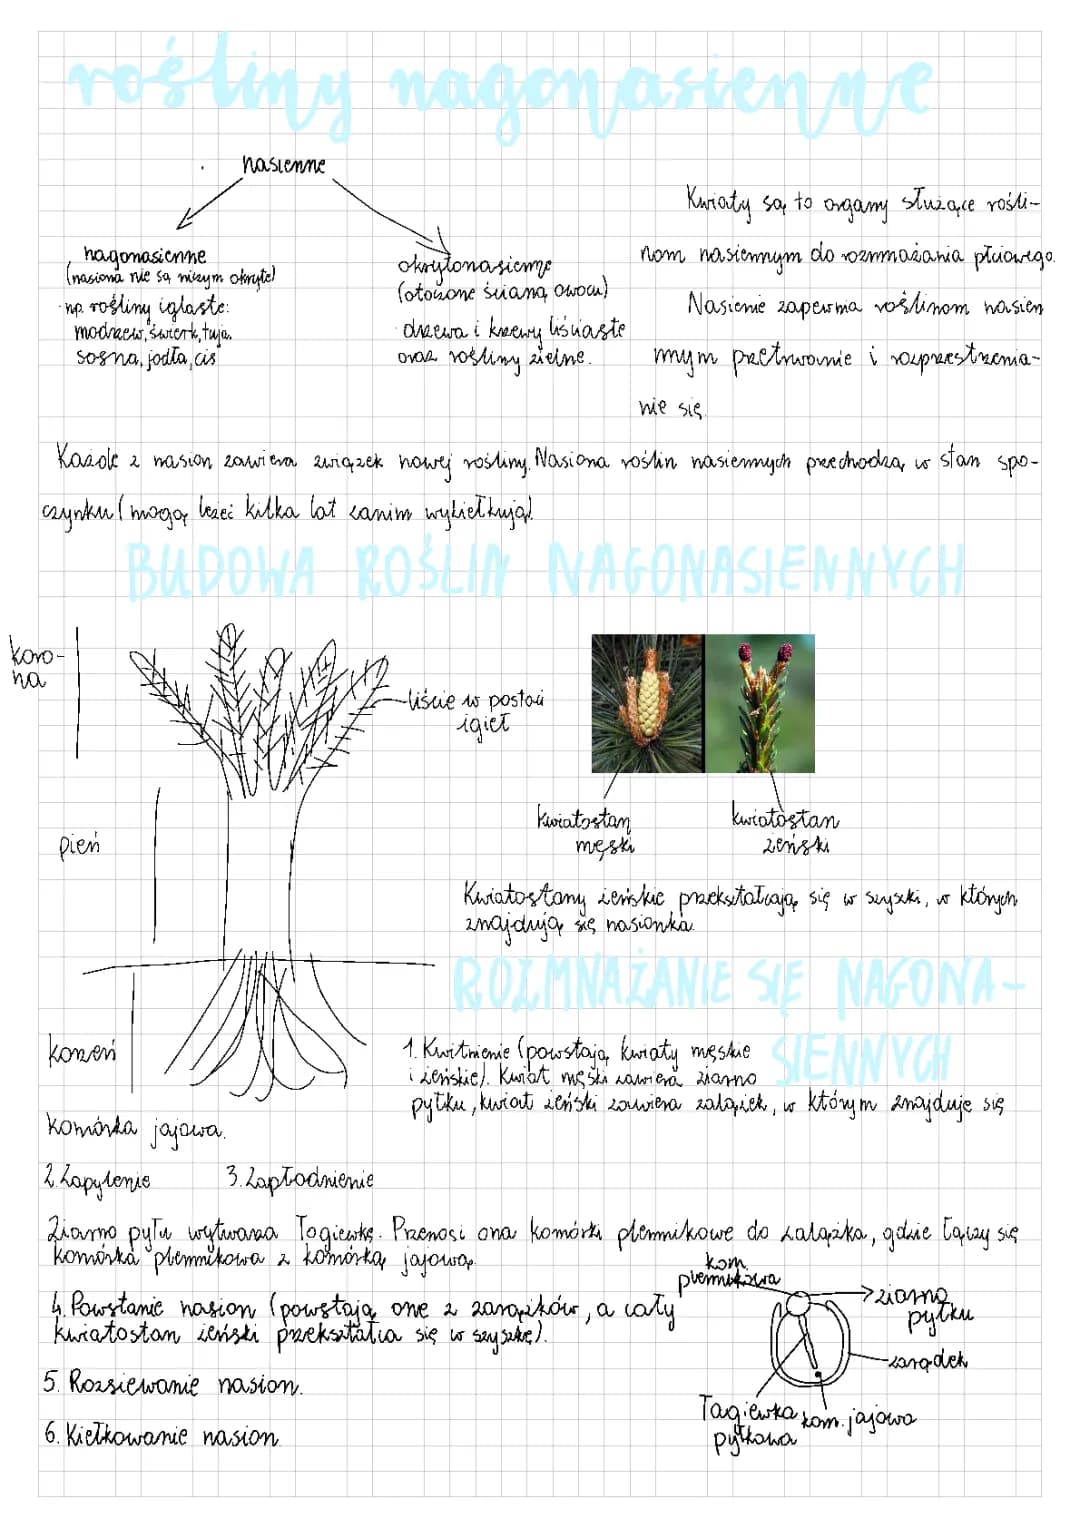 rośliny nagonasienne
nasienne
nagonasienne
(nasiona nie są niczym okryte)
np. rośliny iglaste:
modrzew, świerk, tuja,
sosna, jodła, cis
okrytonasienne
(otoczone ścianą owocu)
drzewa i krzewy liściaste
oraz rośliny zielne.
Kwiaty są to organy służące rośli-
nom nasiennym do rozmnażania płciowego.
Nasienie zapewnia roślinom nasien
nnym przetrwanie i rozprzestrzenia-
nie się.
Każde z nasion zawiera związek nowej rośliny. Nasiona roślin nasiennych przechodzą w stan spo-
czynku (mogą leżeć kilka lat zanim wykiełkują).
BUDOWA ROŚLIN NAGONASIENNYCH
koro-
na
liście w postaci
igieł
pień
korzeń
kwiatostan
męski
kwiatostan
żeński
Kwiatostany żeńskie przekształcają się w szyszki, w których
znajdują się nasionka.
ROZMNAŻANIE SIĘ NAGONA-
SIENNYCH
1. Kwitnienie (powstają kwiaty męskie
i żeńskie). Kwiat męski zawiera ziarno
pyłku, kwiat żeński zawiera zalążek, w którym znajduje się
komórka jajowa.
2. Zapylenie 3. Zapłodnienie
Ziarno pyłu wytwarza łagiewkę. Przenosi ona komórki plemnikowe do zalążka, gdzie łączy się
komórka plemnikowa z komórką jajową.
4. Powstanie nasion (powstają one z zarążków, a cały
kwiatostan żeński przekształca się w szyszkę).
5. Rozsiewanie nasion.
6. Kiełkowanie nasion
kom.
plemnikowa
ziarno
pyłku
zarądek
Łagiewka
pyłkowa
kom. jajowa